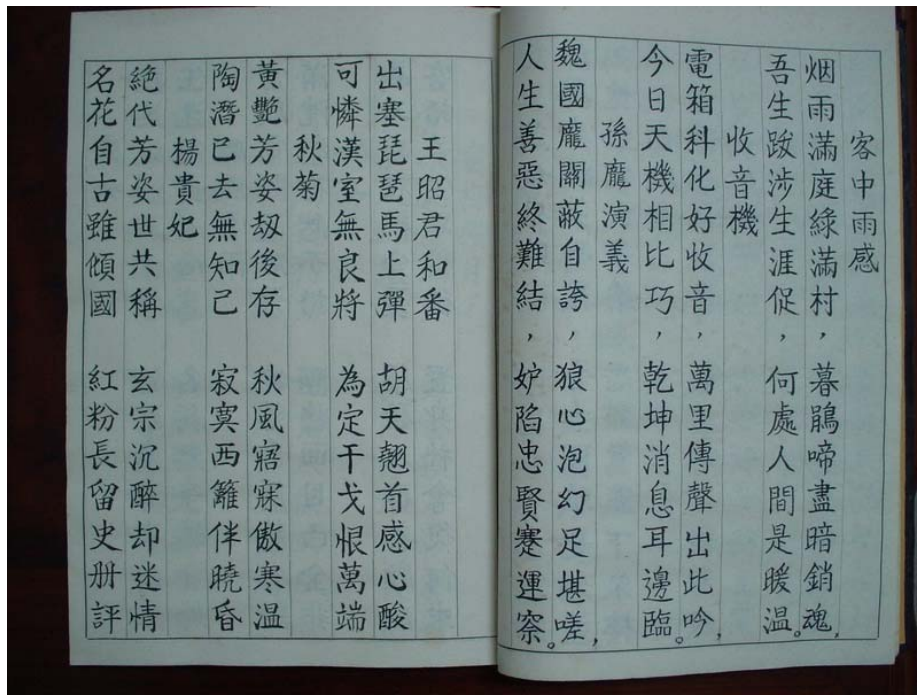 客中雨感
烟雨滿庭綠滿村，暮鵑啼盡暗銷魂，
吾生跋涉生涯促，何處人間是暖温。
收音機
電箱科化好收音，萬里傳聲出此吟，
今日天機相比巧，乾坤消息耳邊臨。
孫龐演義
魏國龐關蔽自誇，狼心泡幻足堪嗟，
人生善惡終難結，妒陷忠賢蹇運𥧌。
王昭君和番
出塞琵琶馬上彈 胡天翹首感心酸
可憐漢室無良將 為定干戈恨萬端
秋菊
黃艷芳姿刼後存 秋風寤寐傲寒温
陶潛已去無知己 寂寞西籬伴曉昏
楊貴妃
絕代芳姿世共稱 玄宗沉醉却迷情
名花自古雖傾國 紅粉長留史册評